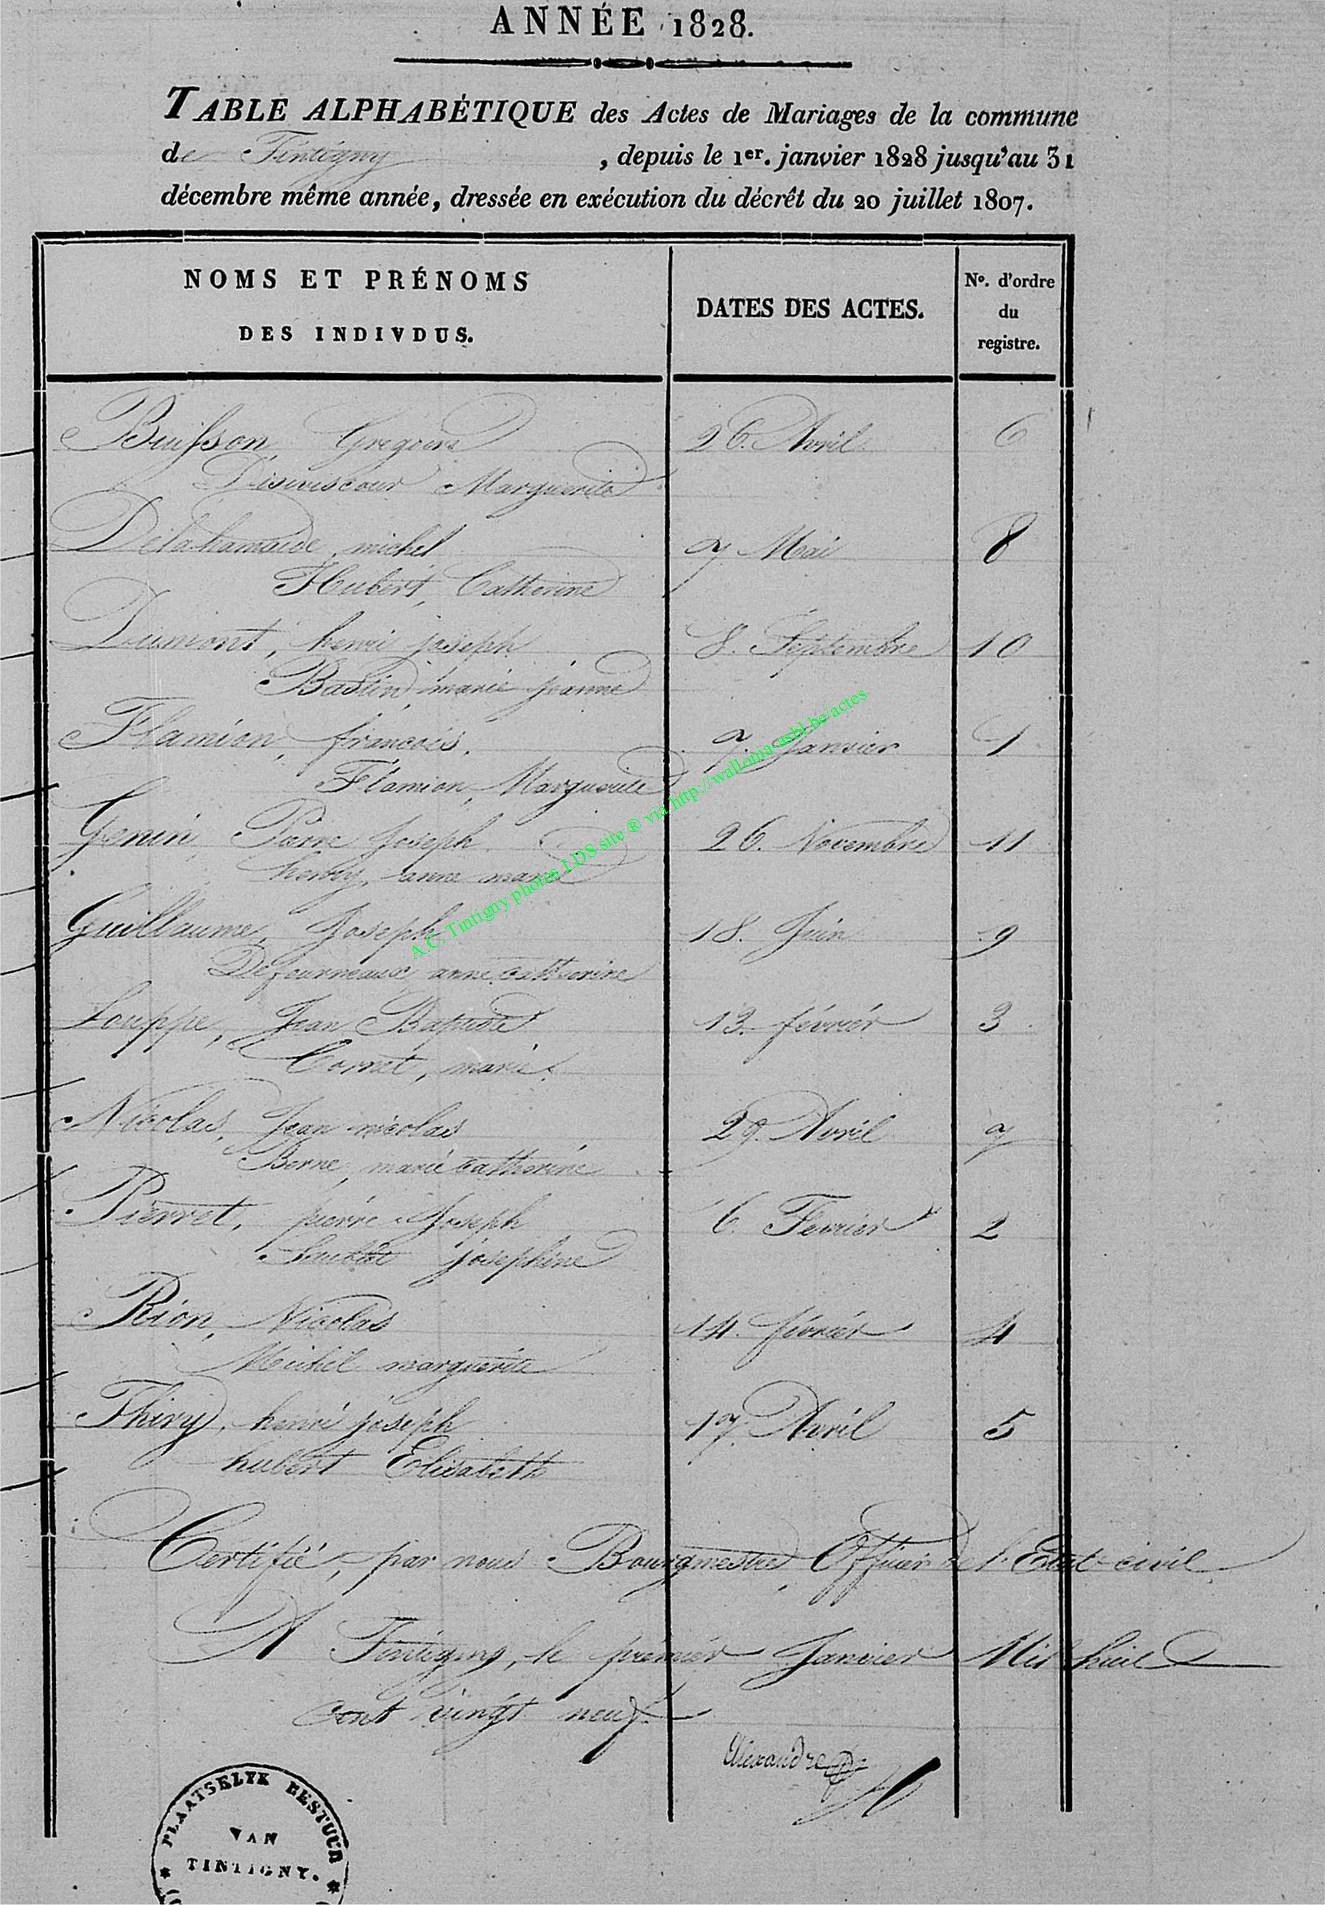 ANNÉE 1828.
TABLE ALPHABÉTIQUE des Actes de Mariages de la commune
de Tintigny , depuis le 1er. janvier 1828 jusqu'au 31
décembre même année, dressée en exécution du décrêt du 20 juillet 1807.
NOMS ET PRÉNOMS
DES INDIVDUS.
DATES DES ACTES.
No. d'ordre
du
registre.
Buisson, Grégoire 26. Avril 6
Marguerite
Delahamaide, michel 7 Mai 8
Hubert, Catherine
Dumont, henri joseph 8. Septembre 10
Bastin, marie jeanne
Flamion, francois. 7. Janvier 1
Flamion, Marguerite
Genin, Pierre Joseph. 26. Novembre 11
anne marie
Guillaume, Joseph 18. Juin 9
Defourneaux, anne catherine
Louppe, Jean Baptiste 13. février 3
Cornet, marie.
Nicolas, Jean nicolas 29. Avril 7
Borne, marie catherine
Pierret, pierre Joseph 6. Fevrier 2
josephine
Rion, Nicolas 14. février 4
Michel marguerite
Thiry, henri joseph 17. Avril 5
hubert Elisabeth
Certifié, par nous Bourgmestre, Officier de l'Etat civil
A Tintigny, le premier Janvier Mil huit
cent vingt neuf
Alexandre
PLAATSELYK BESTUUR
VAN
TINTIGNY.
A.C. Tintigny photos LDS site ® via http://wallonia-asbl.be/actes